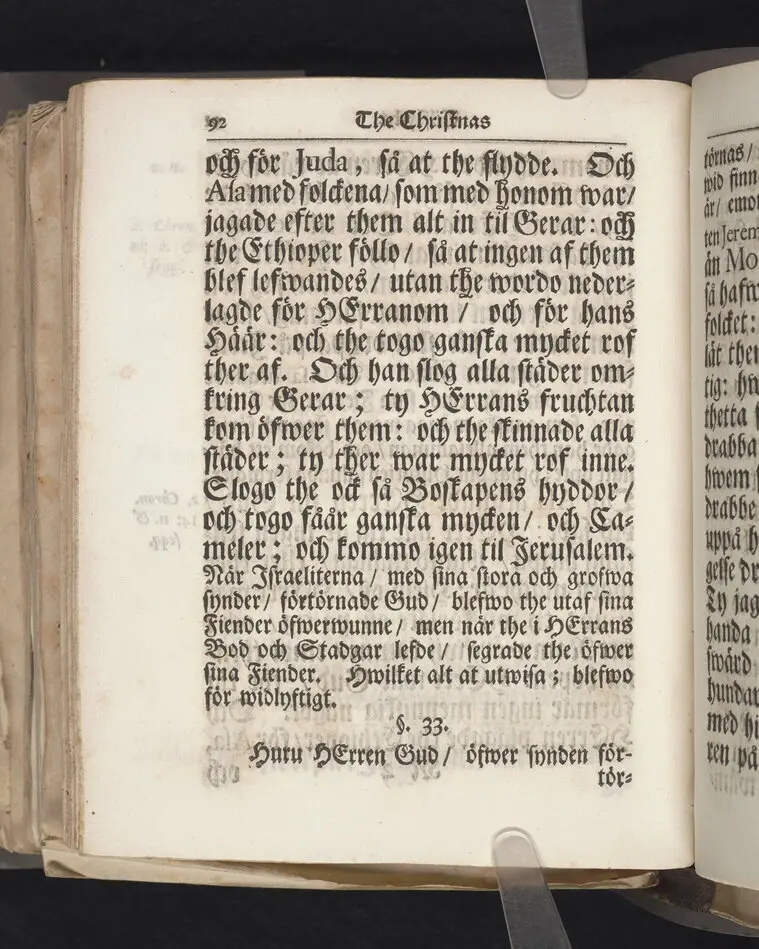 92 The Christnas
och för Juda, så at the flydde. Och
Asa med folckena/ som med honom war/
jagade efter them alt in til Gerar: och
the Ethioper föllo/ så at ingen af them
blef lefwandes/ utan the wordo neder-
lagde för HErranom/ och för hans
Häär: och the togo ganska mycket rof
ther af. Och han slog alla städer om-
kring Gerar; ty HErrans fruchtan
kom öfwer them: och the skinnade alla
städer; ty ther war mycket rof inne.
Slogo the ock så Boskapens hyddor/
och togo fåår ganska mycken/ och Ca-
meler; och kommo igen til Jerusalem.
När Israeliterna/ med sina stora och grofwa
synder/ förtörnade Gud/ blefwo the utaf sina
Fiender öfwerwunne/ men när the i HErrans
Bod och Stadgar lefde/ segrade the öfwer
sina Fiender. Hwilket alt at utwisa; blefwo
för widlyftigt.
§. 33.
Huru HErren Gud/ öfwer synden för-
tör-
törnas/
wid finn
är/ emo
ten Jerem
än Mo
så hafw
folcket:
låt the
tig: hw
thetta
drabba
hwem
drabbe
uppå h
gelse dr
Ty jag
handa
swärd
hundar
med hi
ren på